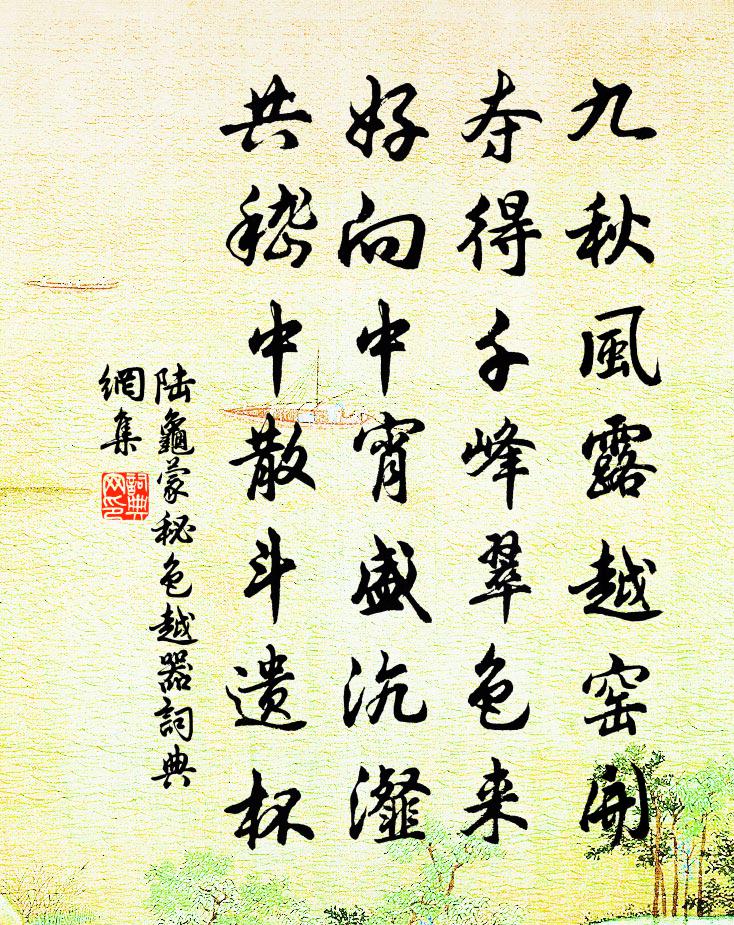 九秋風露越窑開
夺得千峰翠色来
好向中宵盛沆瀣
共嵇中散斗遗杯
陆龜蒙秘色越器詞典
網集
詞典
网印